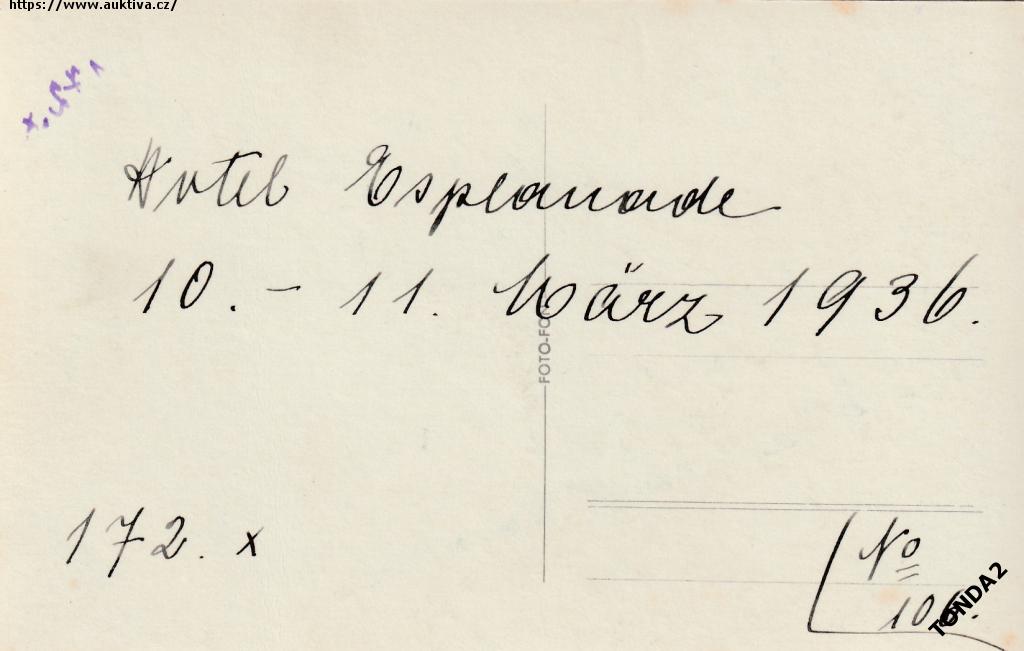 https://www.auktiva.cz/
Hotel Esplanade
10. - 11. März 1936.
FOTO-FO
172. x
No
TONDA2